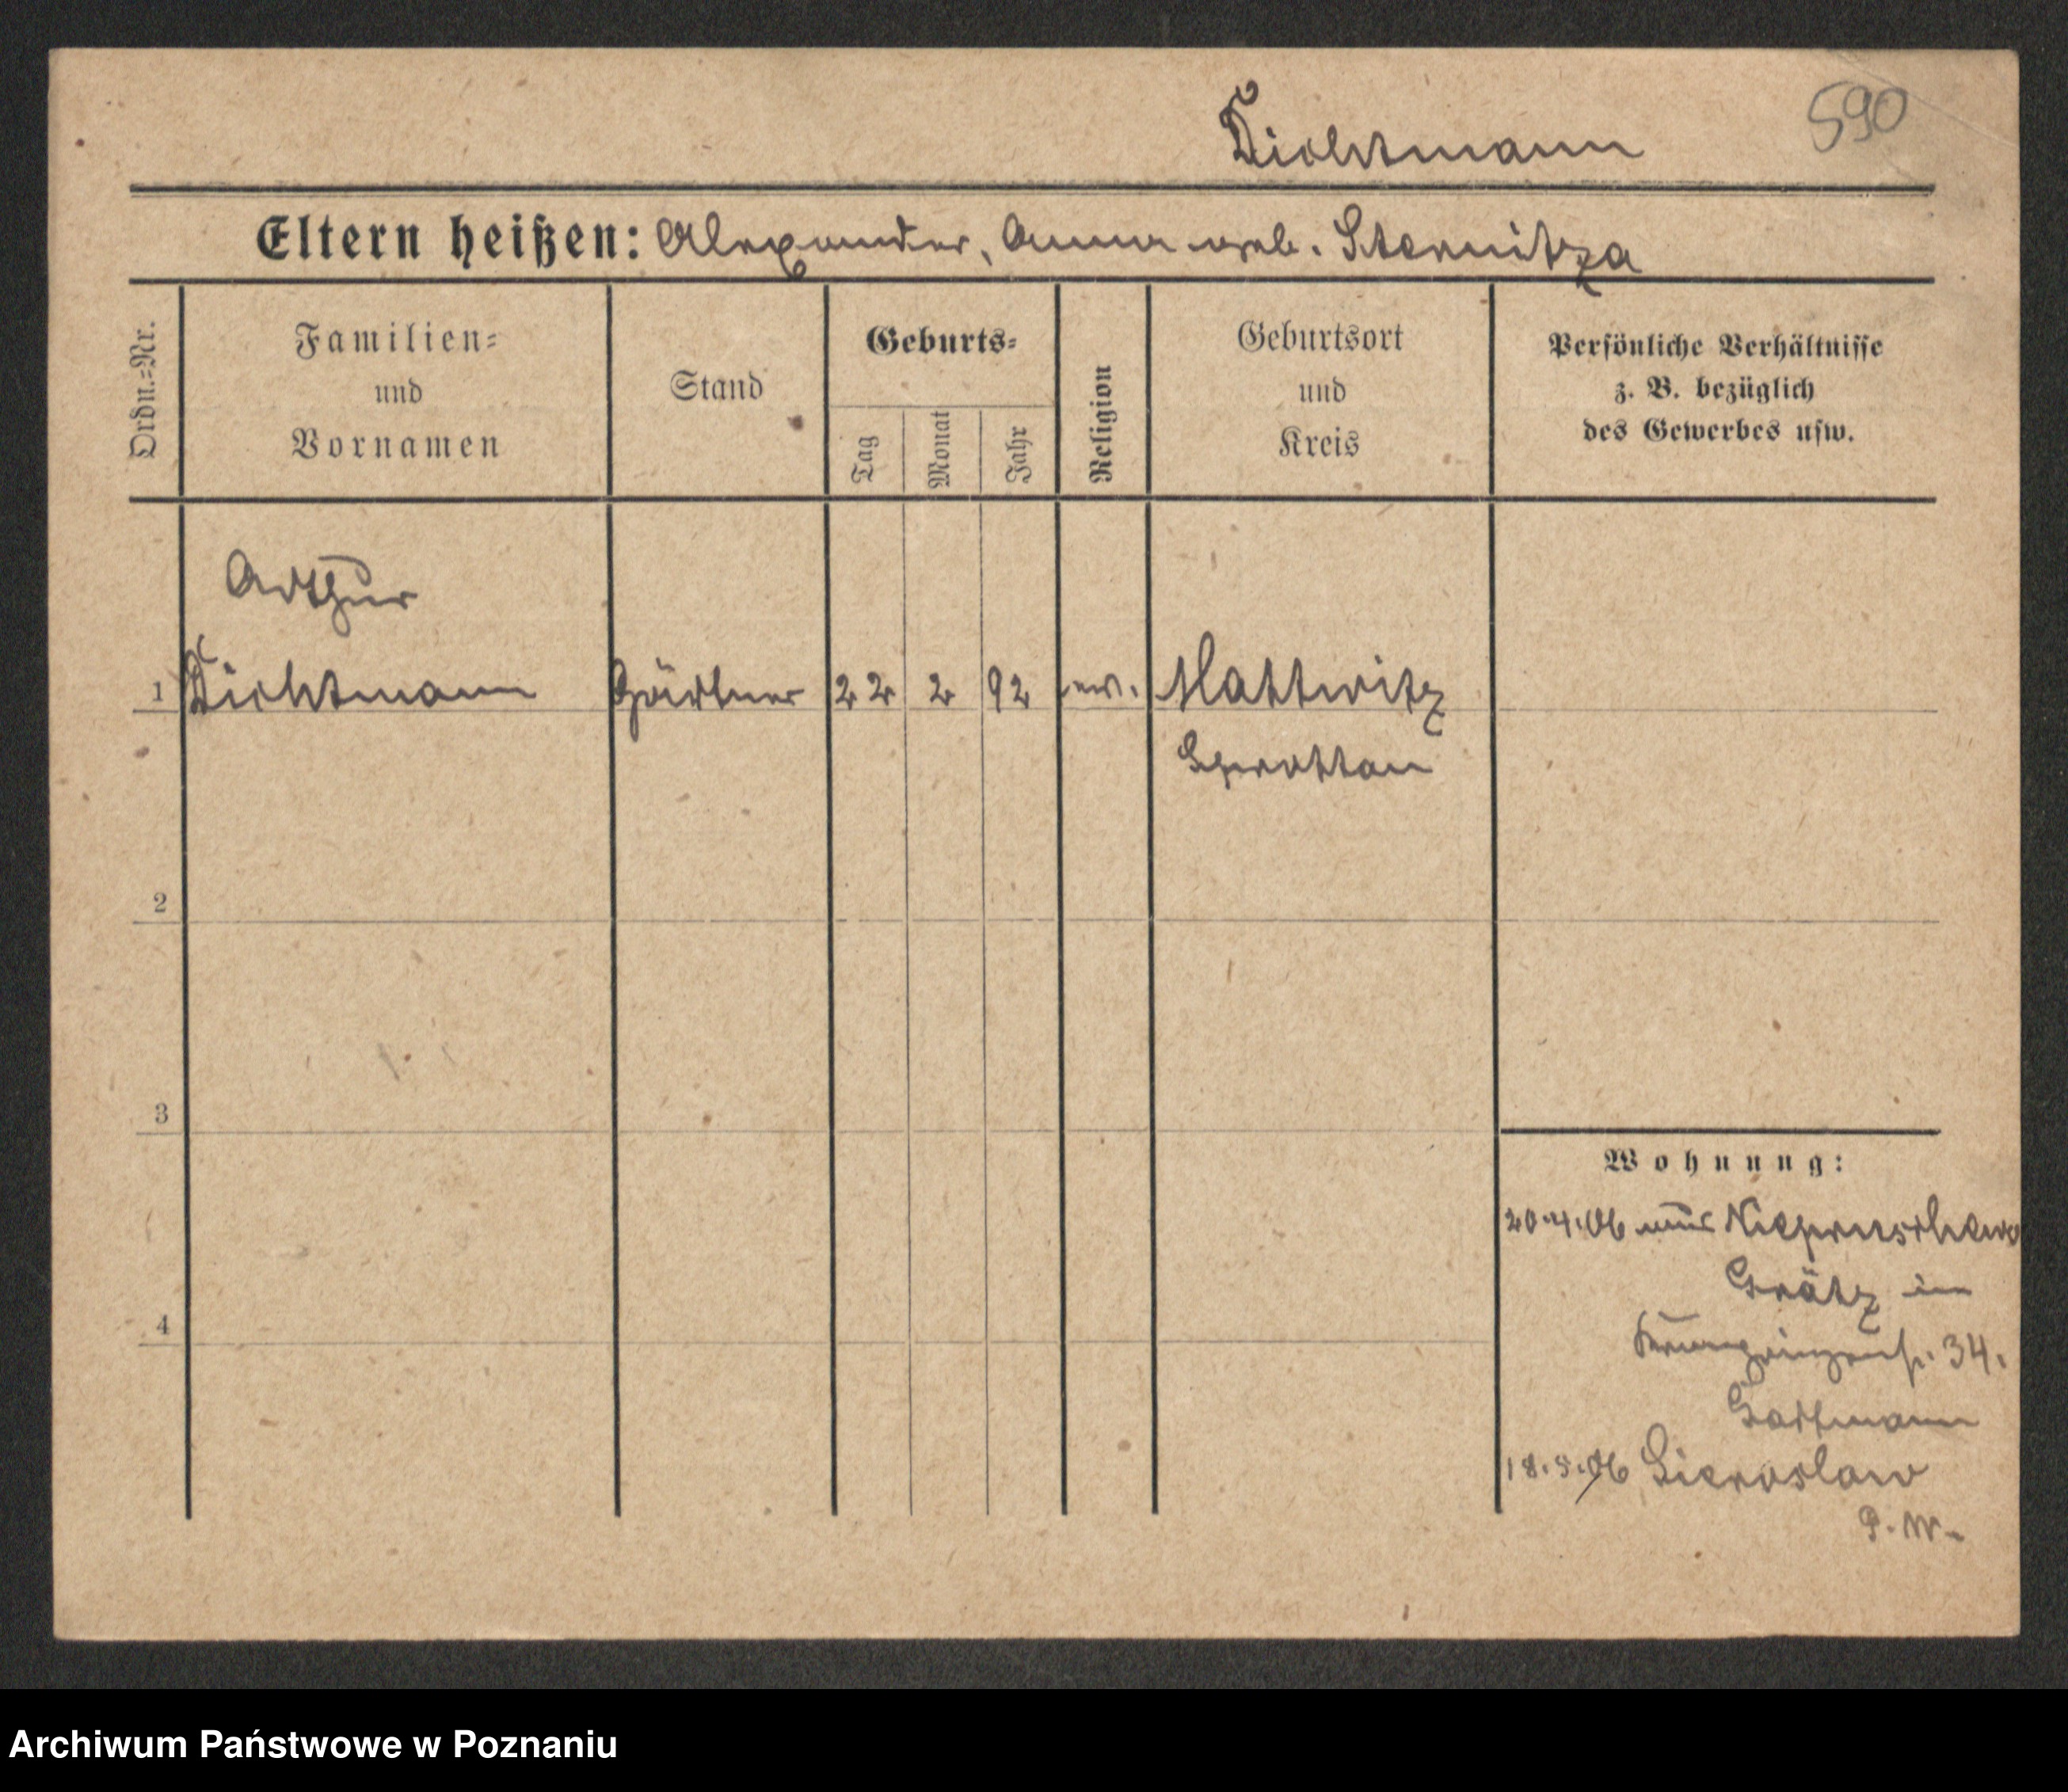 Dichtmann
590
Eltern heißen: Alexander, Anna geb. Sternitza
Ordn.=Nr.
Familien=
und
Vornamen
Stand
Geburts=
Tag
Monat
Jahr
Religion
Geburtsort
und
Kreis
Persönliche Verhältnisse
z. B. bezüglich
des Gewerbes usw.
Arthur
1 Dichtmann Gärtner 22 2 92 ev. Mattwitz
Sprottau
2
3
4
Wohnung:
20.4.06 aus Niepruschewo
Grätz in
34.
Gartmann
18.5.06 Sieroslaw
P. W.
Archiwum Państwowe w Poznaniu